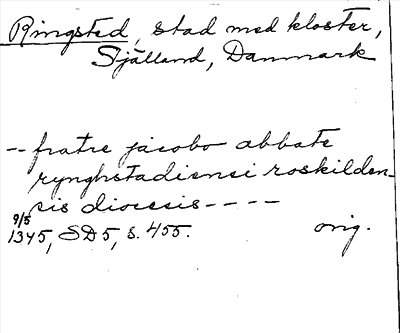 Ringsted, stad med kloster,
Själland, Danmark
-- fratre jacobo abbate
rynghstadiensi roskilden-
sis diocesis ----
9/5
1345, SD5, s. 455. orig.